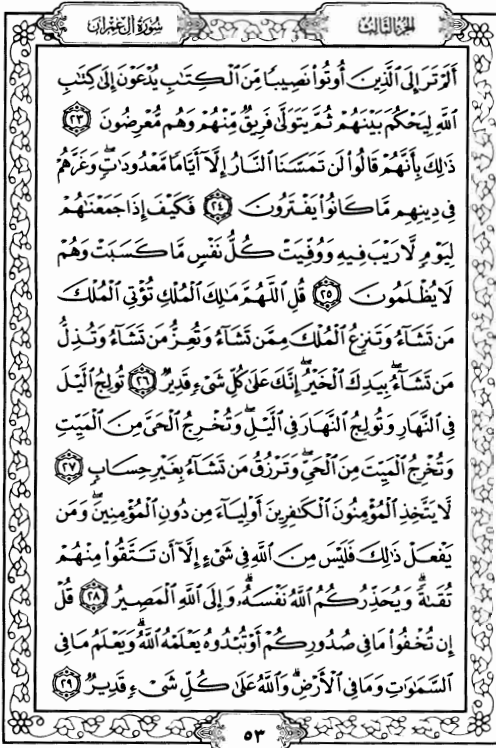 سُورَةُ آلِ عِمْرَان
الجُزْءُ الثَّالِث
أَلَمْ تَرَ إِلَى ٱلَّذِينَ أُوتُوا۟ نَصِيبًا مِّنَ ٱلْكِتَـٰبِ يُدْعَوْنَ إِلَىٰ كِتَـٰبِ
ٱللَّهِ لِيَحْكُمَ بَيْنَهُمْ ثُمَّ يَتَوَلَّىٰ فَرِيقٌ مِّنْهُمْ وَهُم مُّعْرِضُونَ ٢٣
ذَٰلِكَ بِأَنَّهُمْ قَالُوا۟ لَن تَمَسَّنَا ٱلنَّارُ إِلَّآ أَيَّامًا مَّعْدُودَٰتٍ ۖ وَغَرَّهُمْ
فِى دِينِهِم مَّا كَانُوا۟ يَفْتَرُونَ ٢٤ فَكَيْفَ إِذَا جَمَعْنَـٰهُمْ
لِيَوْمٍ لَّا رَيْبَ فِيهِ وَوُفِّيَتْ كُلُّ نَفْسٍ مَّا كَسَبَتْ وَهُمْ
لَا يُظْلَمُونَ ٢٥ قُلِ ٱللَّهُمَّ مَـٰلِكَ ٱلْمُلْكِ تُؤْتِى ٱلْمُلْكَ
مَن تَشَآءُ وَتَنزِعُ ٱلْمُلْكَ مِمَّن تَشَآءُ وَتُعِزُّ مَن تَشَآءُ وَتُذِلُّ
مَن تَشَآءُ ۖ بِيَدِكَ ٱلْخَيْرُ ۖ إِنَّكَ عَلَىٰ كُلِّ شَىْءٍ قَدِيرٌ ٢٦ تُولِجُ ٱلَّيْلَ
فِى ٱلنَّهَارِ وَتُولِجُ ٱلنَّهَارَ فِى ٱلَّيْلِ ۖ وَتُخْرِجُ ٱلْحَىَّ مِنَ ٱلْمَيِّتِ
وَتُخْرِجُ ٱلْمَيِّتَ مِنَ ٱلْحَىِّ ۖ وَتَرْزُقُ مَن تَشَآءُ بِغَيْرِ حِسَابٍ ٢٧
لَّا يَتَّخِذِ ٱلْمُؤْمِنُونَ ٱلْكَـٰفِرِينَ أَوْلِيَآءَ مِن دُونِ ٱلْمُؤْمِنِينَ ۖ وَمَن
يَفْعَلْ ذَٰلِكَ فَلَيْسَ مِنَ ٱللَّهِ فِى شَىْءٍ إِلَّآ أَن تَتَّقُوا۟ مِنْهُمْ
تُقَىٰةً ۗ وَيُحَذِّرُكُمُ ٱللَّهُ نَفْسَهُۥ ۗ وَإِلَى ٱللَّهِ ٱلْمَصِيرُ ٢٨ قُلْ
إِن تُخْفُوا۟ مَا فِى صُدُورِكُمْ أَوْ تُبْدُوهُ يَعْلَمْهُ ٱللَّهُ ۗ وَيَعْلَمُ مَا فِى
ٱلسَّمَـٰوَٰتِ وَمَا فِى ٱلْأَرْضِ ۗ وَٱللَّهُ عَلَىٰ كُلِّ شَىْءٍ قَدِيرٌ ٢٩
٥٣